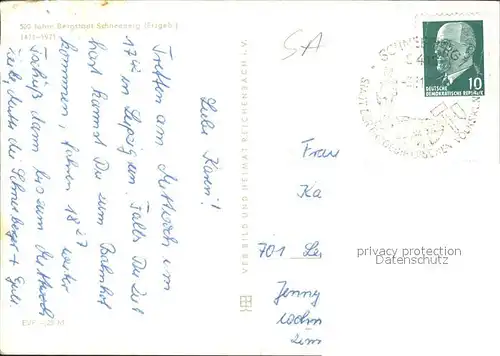 500 Jahre Bergstadt Schneeberg (Erzgeb.)
1471-1971
Liebe Karin!
Treffen am Mittwoch um
17 in Leipzig ein. Falls Du Zeit
hast kannst Du zum Bahnhof
kommen, fahren 18 27 weiter
Tschüß dann bis zum Mittwoch
Mutti
EVP -,25 M
VEB BILD UND HEIMAT REICHENBACH i. V.
SCHNEEBERG
10
DEUTSCHE
DEMOKRATISCHE REPUBLIK
Frau
Ka
701 Le
Jenny
wohn
Zim
privacy protection
Datenschutz